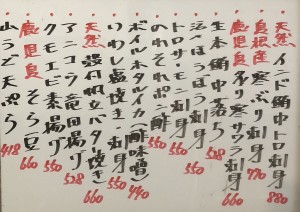 天然 インド鮪中トロ刺身 880
島根産 寒ぶり刺身 770
鹿児島 吊り寒サワラ刺身 660
生本鮪中落ち 528
活〆ほうぼう刺身 550
トロサーモン刺身 550
のれそれポン酢 550
ボイルホタルイカ(酢味噌) 440
いわし塩焼き・刺身 550
天然 殻付帆立バター焼き 660
アンコウ竜田揚げ 528
クモエビ素揚げ 550
鹿児島 そら豆 660
山うど天ぷら 418